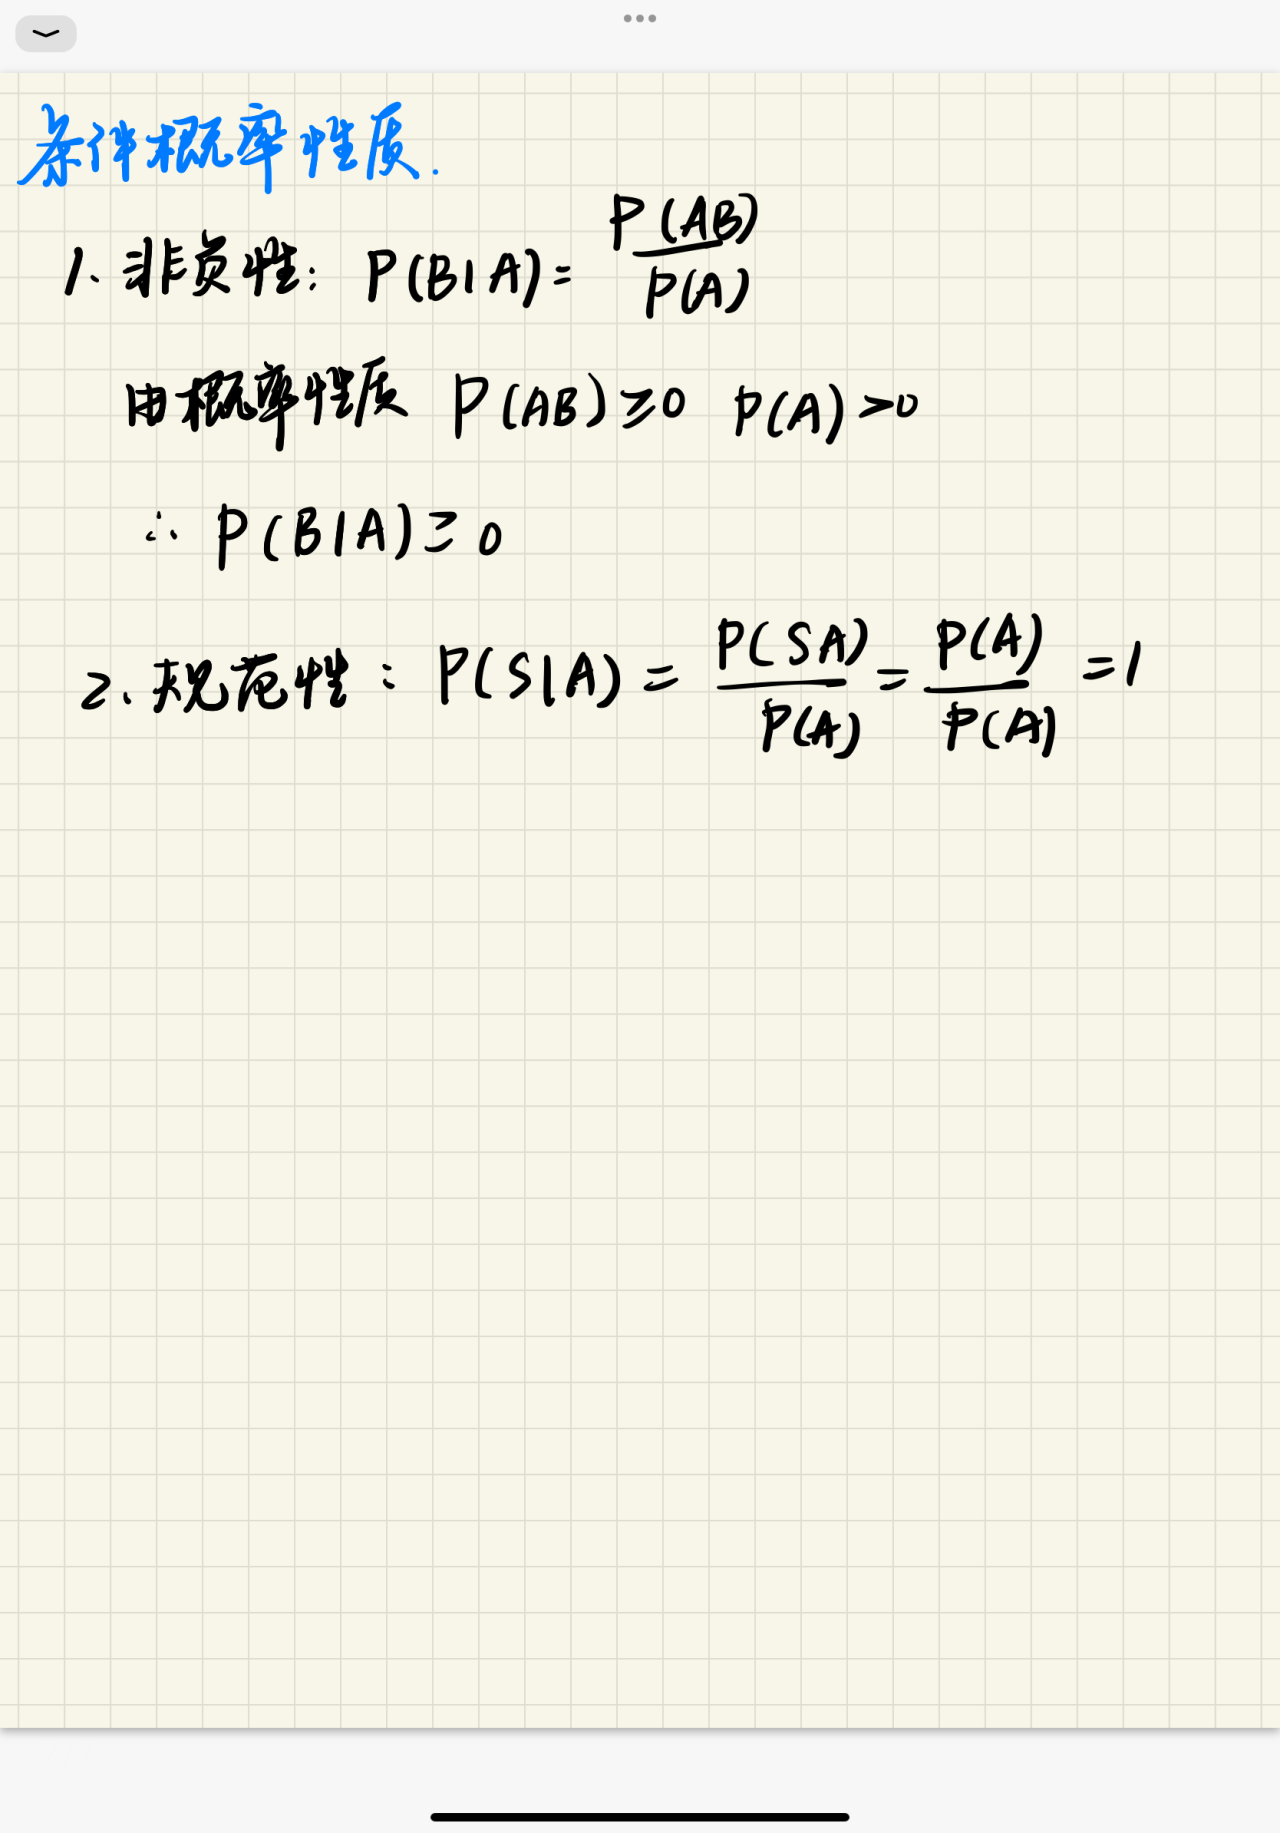 条件概率性质.
1. 非负性: P(B|A) = P(AB) / P(A)
由概率性质 P(AB)≥0 P(A)>0
∴ P(B|A)≥0
2. 规范性: P(S|A) = P(SA) / P(A) = P(A) / P(A) = 1